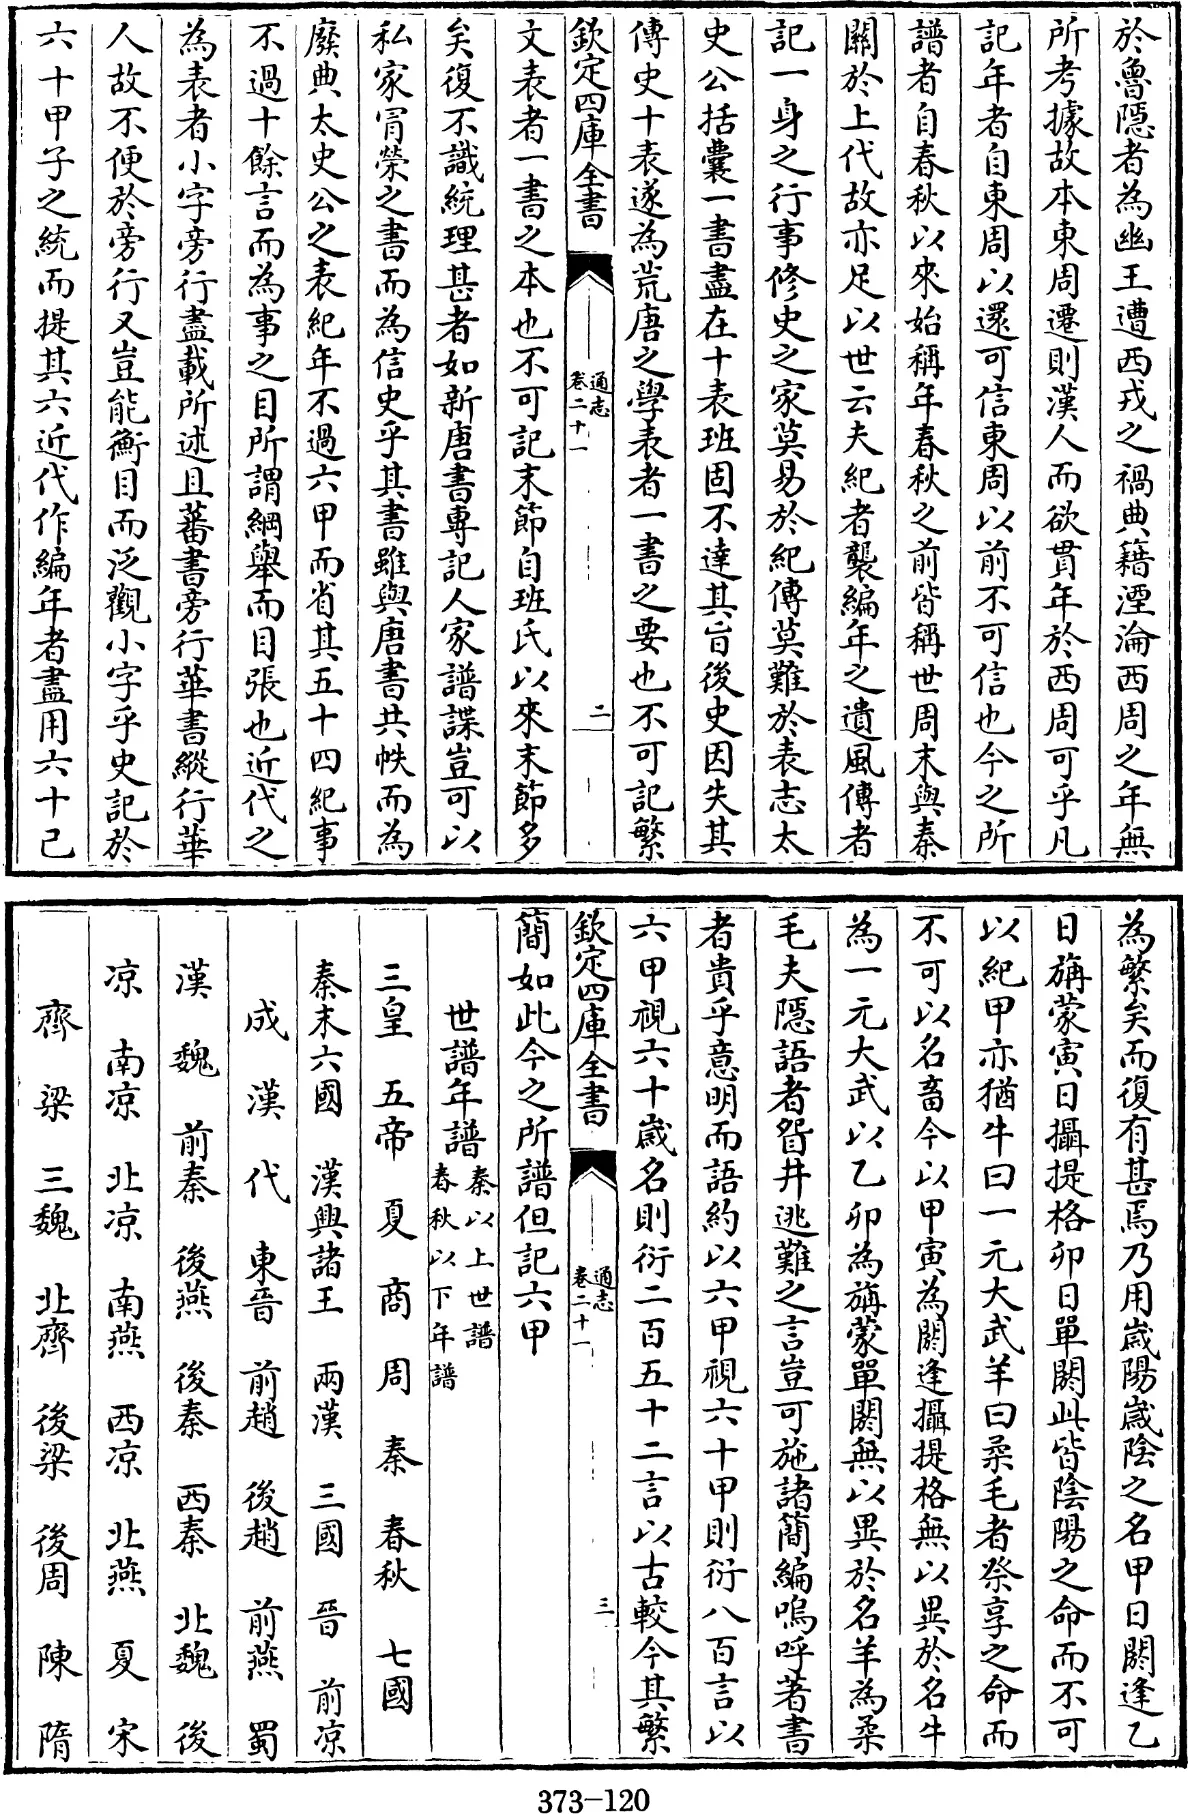 於魯隱者為幽王遭西戎之禍典籍湮淪西周之年無
所考據故本東周遷則漢人而欲貫年於西周可乎凡
記年者自東周以還可信東周以前不可信也今之所
譜者自春秋以來始稱年春秋之前皆稱世周末與秦
關於上代故亦足以世云夫紀者襲編年之遺風傳者
記一身之行事修史之家莫易於紀傳莫難於表志太
史公括囊一書盡在十表班固不達其旨後史因失其
傳史十表遂為荒唐之學表者一書之要也不可記繁
欽定四庫全書
通志
卷二十一
二
文表者一書之本也不可記末節自班氏以來末節多
矣復不識統理甚者如新唐書專記人家譜諜豈可以
私家冐榮之書而為信史乎其書雖與唐書共帙而為
廢典太史公之表紀年不過六甲而省其五十四紀事
不過十餘言而為事之目所謂綱舉而目張也近代之
為表者小字旁行盡載所述且蕃書旁行華書縱行華
人故不便於旁行又豈能衡目而泛觀小字乎史記於
六十甲子之統而提其六近代作編年者盡用六十己
為繁矣而復有甚焉乃用歲陽歲陰之名甲曰閼逢乙
曰旃蒙寅曰攝提格卯曰單閼此皆陰陽之命而不可
以紀甲亦猶牛曰一元大武羊曰柔毛者祭享之命而
不可以名畜今以甲寅為閼逢攝提格無以異於名牛
為一元大武以乙卯為旃蒙單閼無以異於名羊為柔
毛夫隱語者眢井逃難之言豈可施諸簡編嗚呼著書
者貴乎意明而語約以六甲視六十甲則衍八百言以
六甲視六十歲名則衍二百五十二言以古較今其繁
欽定四庫全書
通志
卷二十一
三
簡如此今之所譜但記六甲
世譜年譜 秦以上世譜 春秋以下年譜
三皇 五帝 夏 商 周 秦 春秋 七國
秦末六國 漢興諸王 兩漢 三國 晉 前凉
成 漢 代 東晉 前趙 後趙 前燕 蜀
漢 魏 前秦 後燕 後秦 西秦 北魏 後
凉 南凉 北凉 南燕 西凉 北燕 夏 宋
齊 梁 三魏 北齊 後梁 後周 陳 隋
373-120